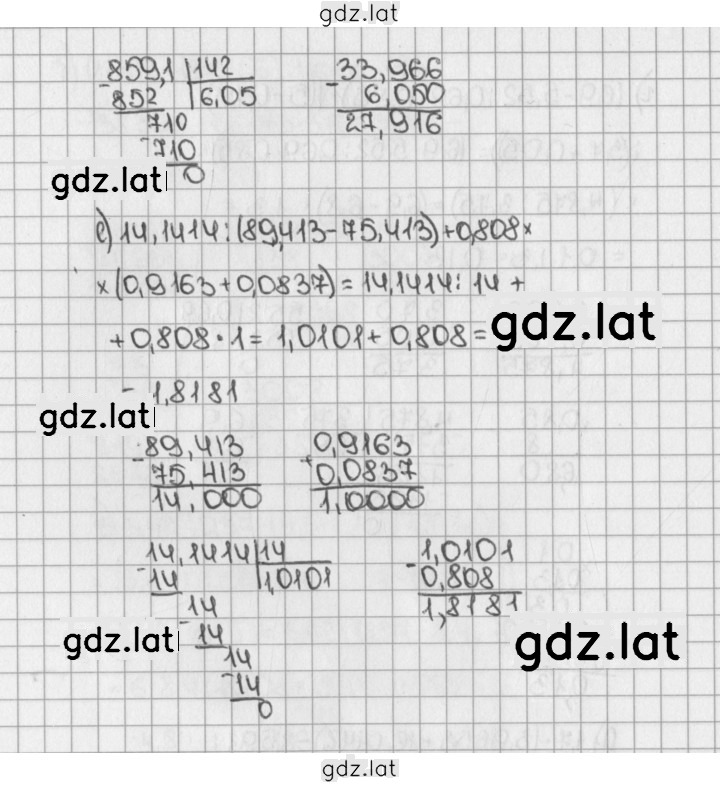 gdz.lat
859,1 |142
- 852 | 6,05
710
- 710
0
- 33,966
6,050
27,916
gdz.lat
е) 14,1414:(89,413-75,413)+0,808×
×(0,9163+0,0837)=14,1414:14+
+0,808·1=1,0101+0,808=
gdz.lat
- 1,8181
gdz.lat
- 89,413
75,413
14,000
+ 0,9163
0,0837
1,0000
14,1414 |14
- 14 | 1,0101
14
- 14
14
- 14
0
- 1,0101
0,808
1,8181
gdz.lat
gdz.lat
gdz.lat